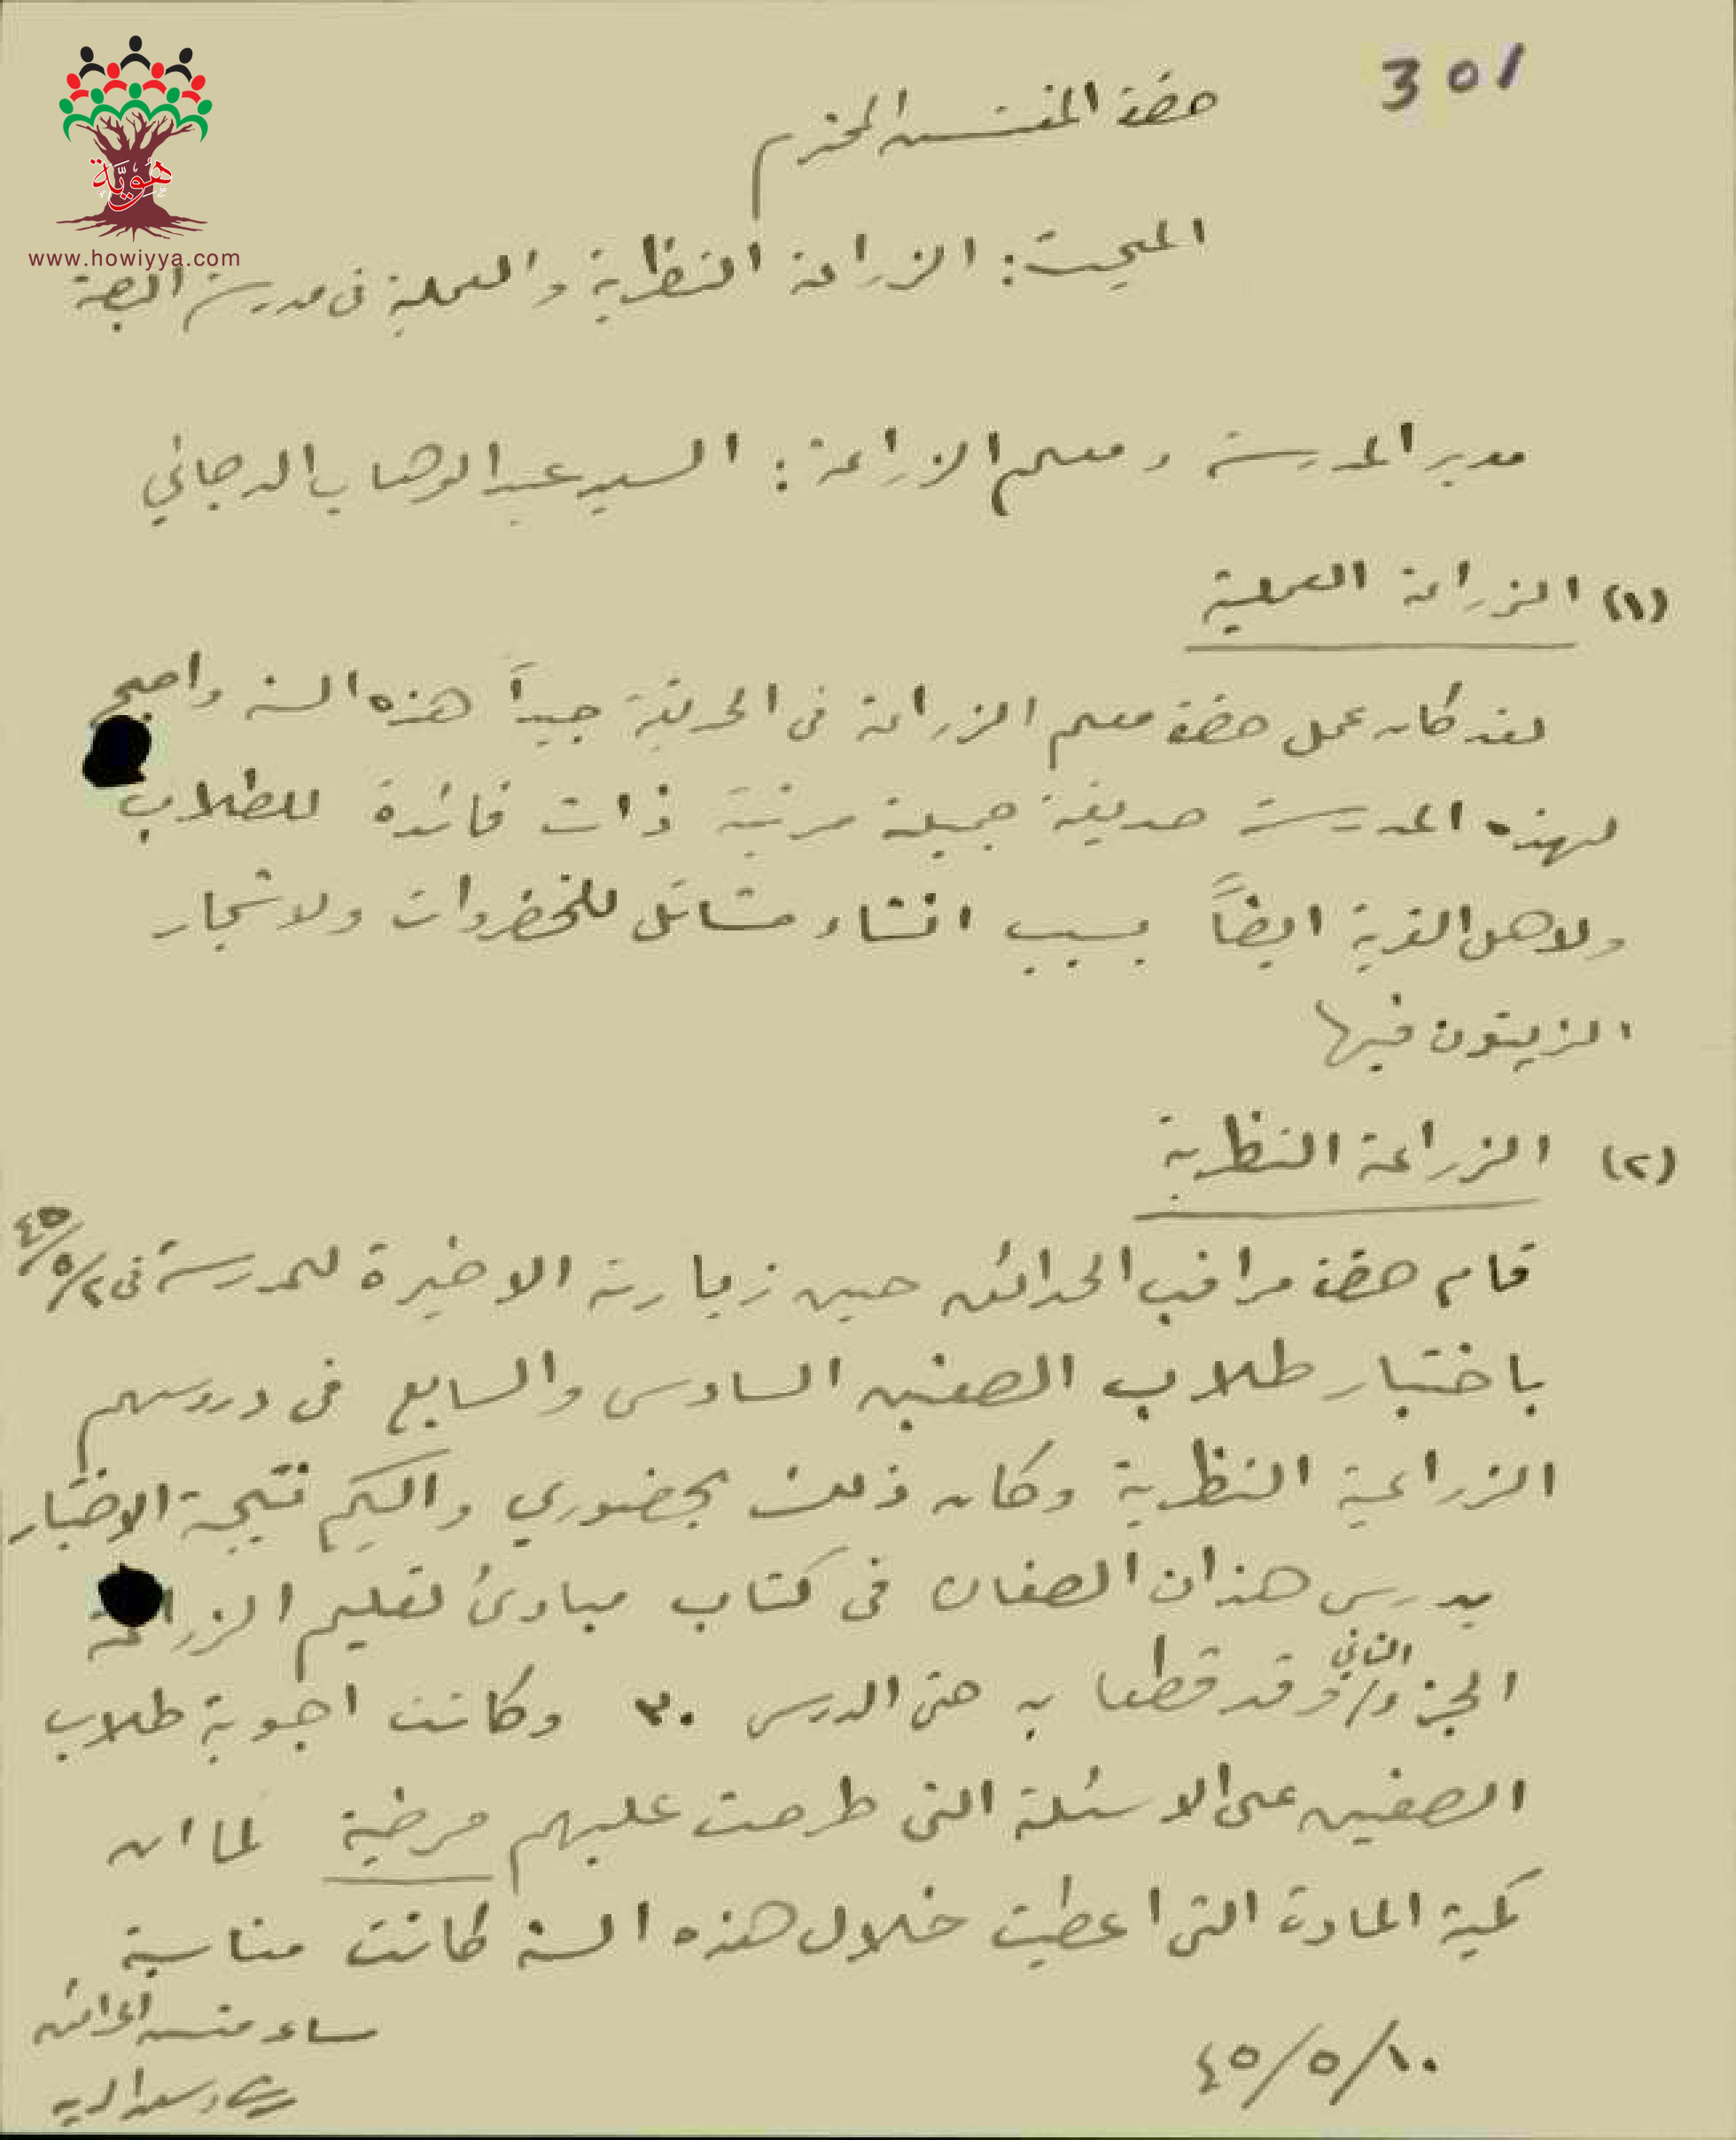 301
هوية
www.howiyya.com
حضرة المفتش المحترم
المبحث: الزراعة النظرية والعملية في مدرسة البصة
مدير المدرسة ومعلم الزراعة: السيد عبد الوهاب الدجاني
(١) الزراعة العملية
لقد كان عمل حضرة معلم الزراعة في الحديقة جيداً هذه السنة واصبح
لهذه المدرسة حديقة جميلة مرتبة ذات فائدة للطلاب
ولاهل القرية ايضاً بسبب انشاء مشاتل للخضروات ولاشجار
الزيتون فيها
(٢) الزراعة النظرية
قام حضرة مراقب الحدائق حين زيارته الاخيرة للمدرسة في ٢/٥/٤٥
باختبار طلاب الصفين السادس والسابع في دروسهم
الزراعية النظرية وكان ذلك بحضوري واليكم نتيجة الاختبار
يدرس هذان الصفان في كتاب مبادئ تعليم الزراعة
الجزء الثاني وقد قطعا به حتى الدرس ٣٠ وكانت اجوبة طلاب
الصفين على الاسئلة التي طرحت عليهم مرضية كما ان
كمية المادة التي اعطيت خلال هذه السنة كانت مناسبة
١٠/٥/٤٥
مساعد مفتش الحدائق
سعد الدين